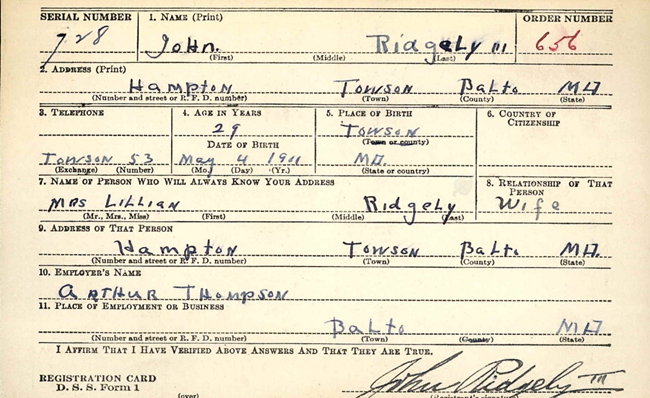 SERIAL NUMBER 1. NAME (Print) ORDER NUMBER
728 John. Ridgely III 656
(First) (Middle) (Last)
2. ADDRESS (Print)
Hampton Towson Balto Md
(Number and street or R. F. D. number) (Town) (County) (State)
3. TELEPHONE 4. AGE IN YEARS 5. PLACE OF BIRTH 6. COUNTRY OF CITIZENSHIP
29 Towson
DATE OF BIRTH (Town or county)
Towson 53 May 4 1911 Md.
(Exchange) (Number) (Mo.) (Day) (Yr.) (State or country)
7. NAME OF PERSON WHO WILL ALWAYS KNOW YOUR ADDRESS 8. RELATIONSHIP OF THAT PERSON
Mrs Lillian Ridgely Wife
(Mr., Mrs., Miss) (First) (Middle) (Last)
9. ADDRESS OF THAT PERSON
Hampton Towson Balto Md.
(Number and street or R. F. D. number) (Town) (County) (State)
10. EMPLOYER'S NAME
Arthur Thompson
11. PLACE OF EMPLOYMENT OR BUSINESS
Balto Md
(Number and street or R. F. D. number) (Town) (County) (State)
I AFFIRM THAT I HAVE VERIFIED ABOVE ANSWERS AND THAT THEY ARE TRUE.
REGISTRATION CARD John Ridgely III
D. S. S. Form 1
(over) (Registrant's signature)